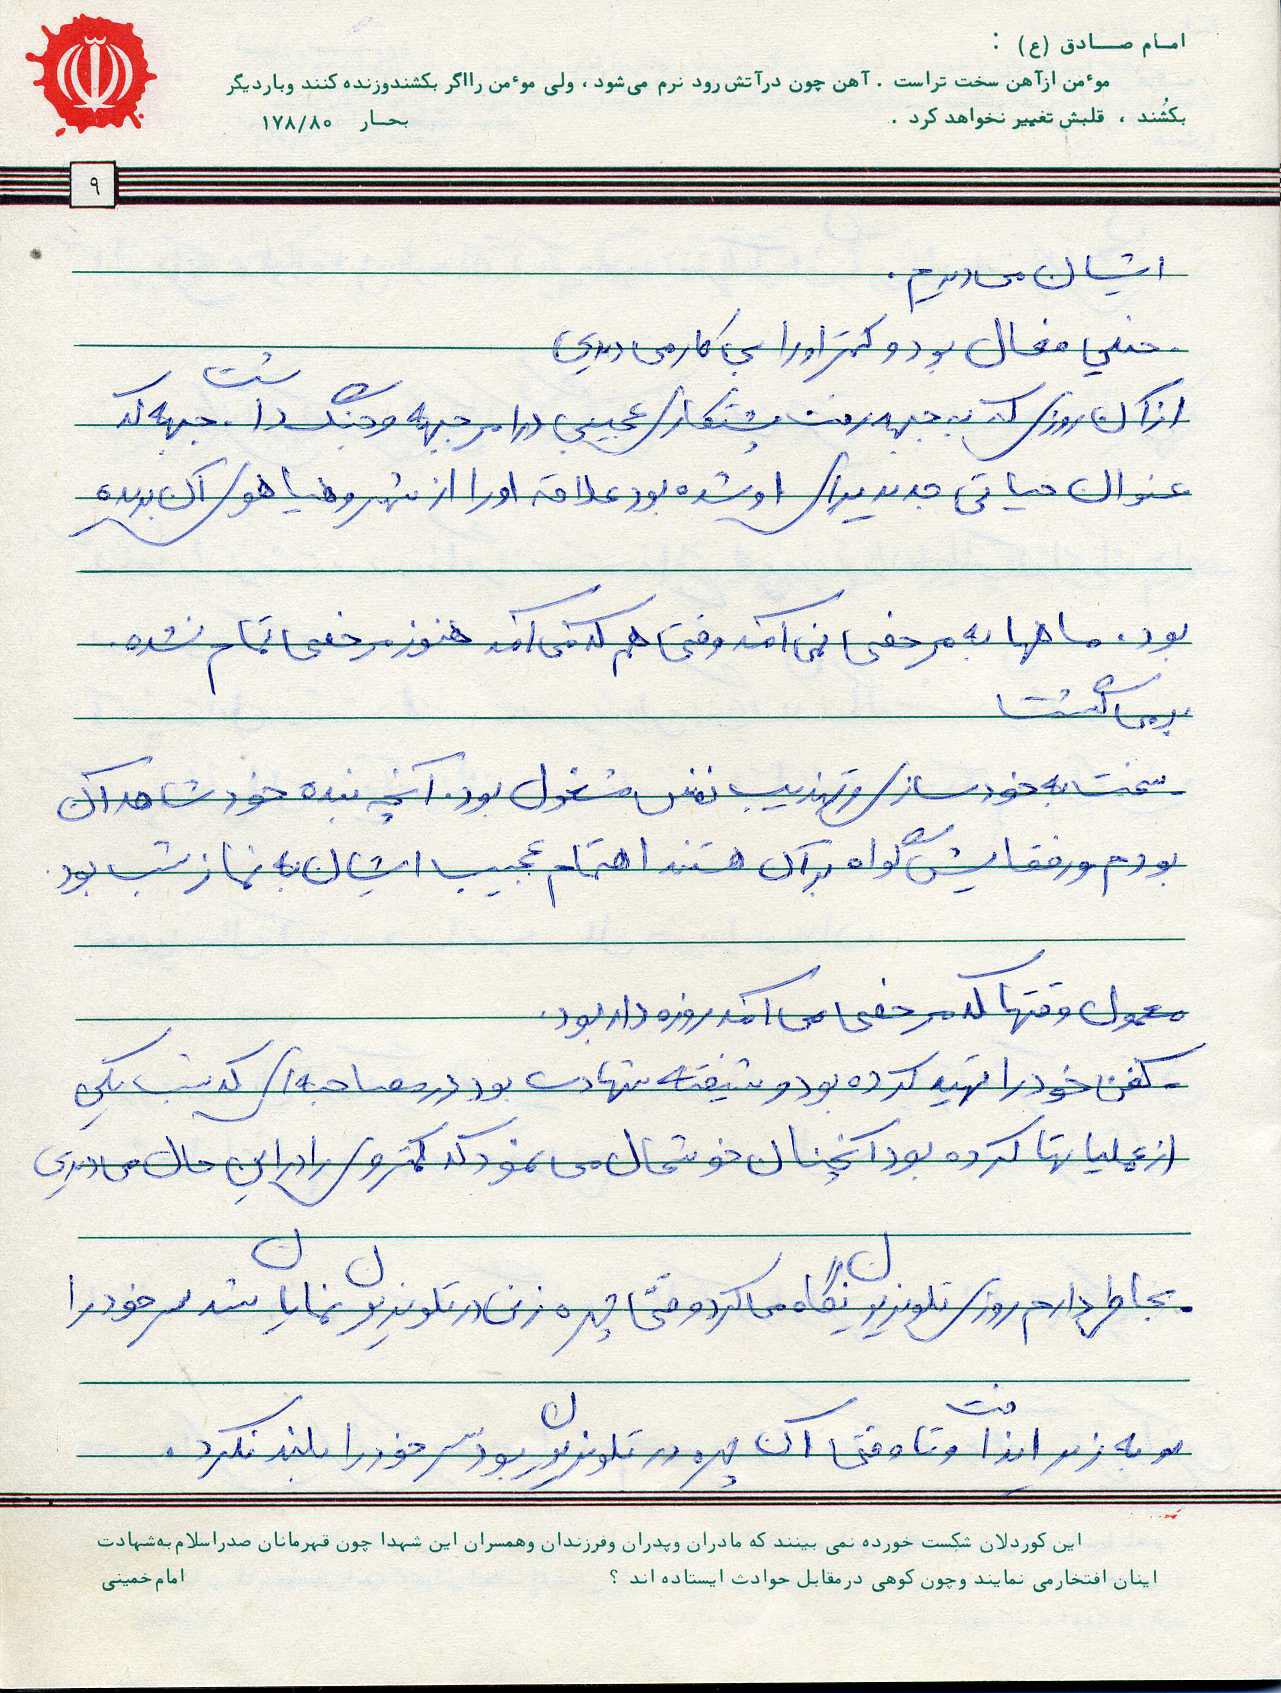 امام صادق (ع) :
موٴمن ازآهن سخت تراست . آهن چون درآتش رود نرم می‌شود ، ولی موٴمن رااگر بکشندوزنده کنند وباردیگر
بکشُند ، قلبش تغییر نخواهد کرد .
بحار ۱۷۸/۸۰
۹
ایشان می‌دیدم .
- خیلی فعال بود و کمتر اورا بی کار می دیدی
از آن روزی که به جبهه رفت پشتکاری عجیبی در امر جبهه و جنگ داشت . جبهه که
عنوان حیاتی جدید برای او شده بود علاقه او را از شهر و هیاهوی آن بریده
بود . ماهها به مرخصی نمی آمد وقتی هم که می آمد هنوز مرخصی تمام نشده .
برمی گشت
- سخت به خودسازی و تهذیب نفس مشغول بود . آنچه بنده خود شاهد آن
بودم و رفقایش گواه بر آن هستند اهتمام عجیب ایشان به نماز شب بود .
معمول وقتها که مرخصی می آمد روزه دار بود .
- کفن خود را تهیه کرده بود و شیفته شهادت بود در مصاحبه ای که شب یکی
از عملیاتها کرده بود آنچنان خوشحال می نمود که کمتر وی را در این حال می دیدی
- بخاطر دارم روزی تلویزیون نگاه می کرد وقتی چهره زنی در تلویزیون نمایان شد سر خود را
به زیر انداخت و تا وقتی آن چهره در تلویزیون بود سر خود را بلند نکرد .
این کوردلان شکست خورده نمی بینند که مادران وپدران وفرزندان وهمسران این شهدا چون قهرمانان صدراسلام به‌شهادت
اینان افتخارمی نمایند وچون کوهی درمقابل حوادث ایستاده اند ؟ امام‌خمینی